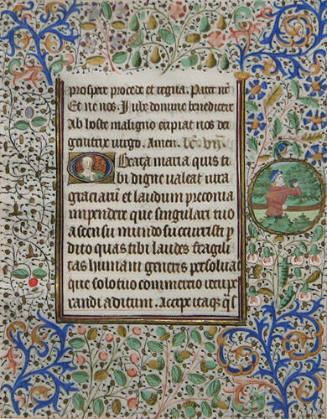 prospere procede et regna. Pater nr
Et ne nos. Jube domine benedicere
Ab hoste maligno eripiat nos dei
genitrix virgo. Amen. Lc. viii.
O Beata maria quis ti
bi digne valeat iura
graciarum et laudum preconia
impendere que singulari tuo
assensu mundo succurristi p
dito quas tibi laudes fragili
tas humani generis persolvat
que solo tuo commercio recupe
randi aditum. Accipe itaq qs